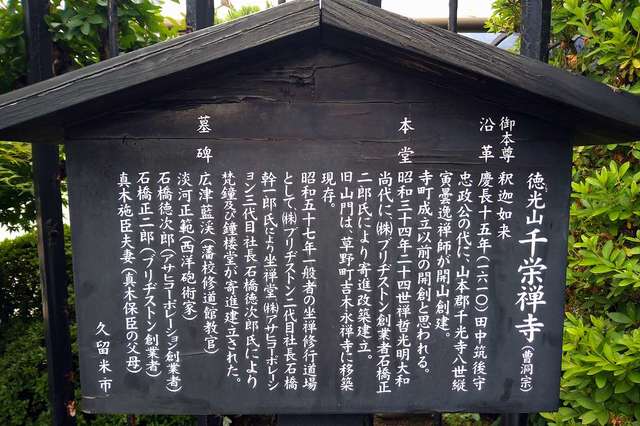 徳光山千栄禅寺(曹洞宗)
御本尊 釈迦如来
沿革 慶長十五年(一六一〇)田中筑後守
忠政公の代に、山本郡千光寺八世縦
寅曇逸禅師が開山創建。
寺町成立以前の開創と思われる。
本堂 昭和三十四年二十四世禅哲光明大和
尚代に、㈱ブリヂストン創業者石橋正
二郎氏により寄進改築建立。
旧山門は、草野町吉木永禅寺に移築
現存。
昭和五十七年一般者の坐禅修行道場
として、㈱ブリヂストン二代目社長石橋
幹一郎氏により坐禅堂、㈱アサヒコーポレーシ
ョン三代目社長石橋徳次郎氏により
梵鐘及び鐘楼堂が寄進建立された。
墓碑 広津藍渓(藩校修道館教官)
淡河正範(西洋砲術家)
石橋徳次郎(アサヒコーポレーション創業者)
石橋正二郎(ブリヂストン創業者)
真木施臣夫妻(真木保臣の父母)
久留米市